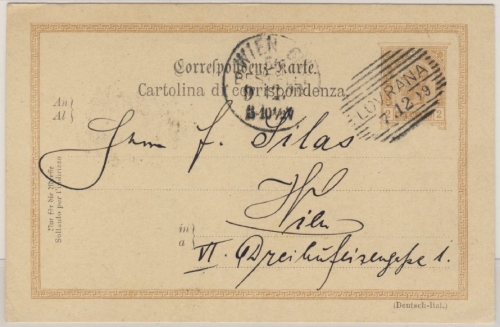 Correspondenz-Karte.
Cartolina di corrispondenza.
WIEN
LOVRANA
7.12.19
2
An
Al
Herrn F. Silas
Wien
in
a
VI. Dreihufeisengasse 1.
Nur für die Adresse
Soltanto per l'indirizzo
(Deutsch-Ital.)